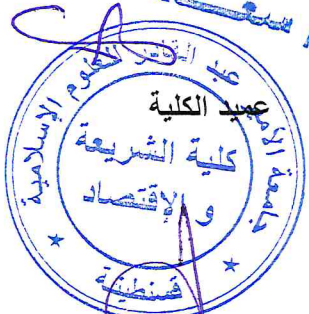 عميد الكلية
جامعة الأمير عبد القادر للعلوم الإسلامية
كلية الشريعة
و الإقتصاد
قسنطينة